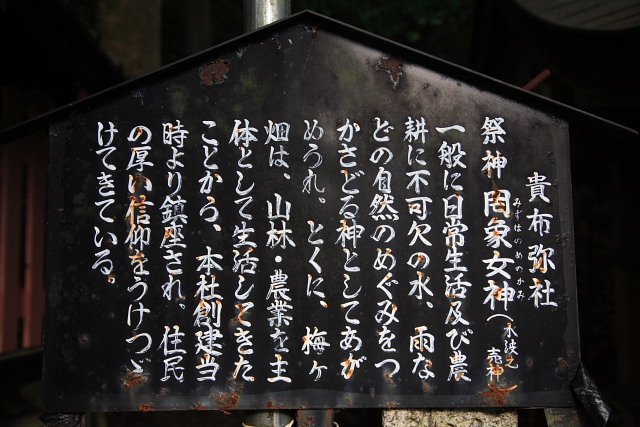 貴布弥社
祭神 罔象女神(水波之売神)
みずはのめのかみ
一般に日常生活及び農
耕に不可欠の水、雨な
どの自然のめぐみをつ
かさどる神としてあが
められ。とくに、梅ヶ
畑は、山林・農業を主
体として生活してきた
ことから、本社創建当
時より鎮座され、住民
の厚い信仰をうけつづ
けてきている。